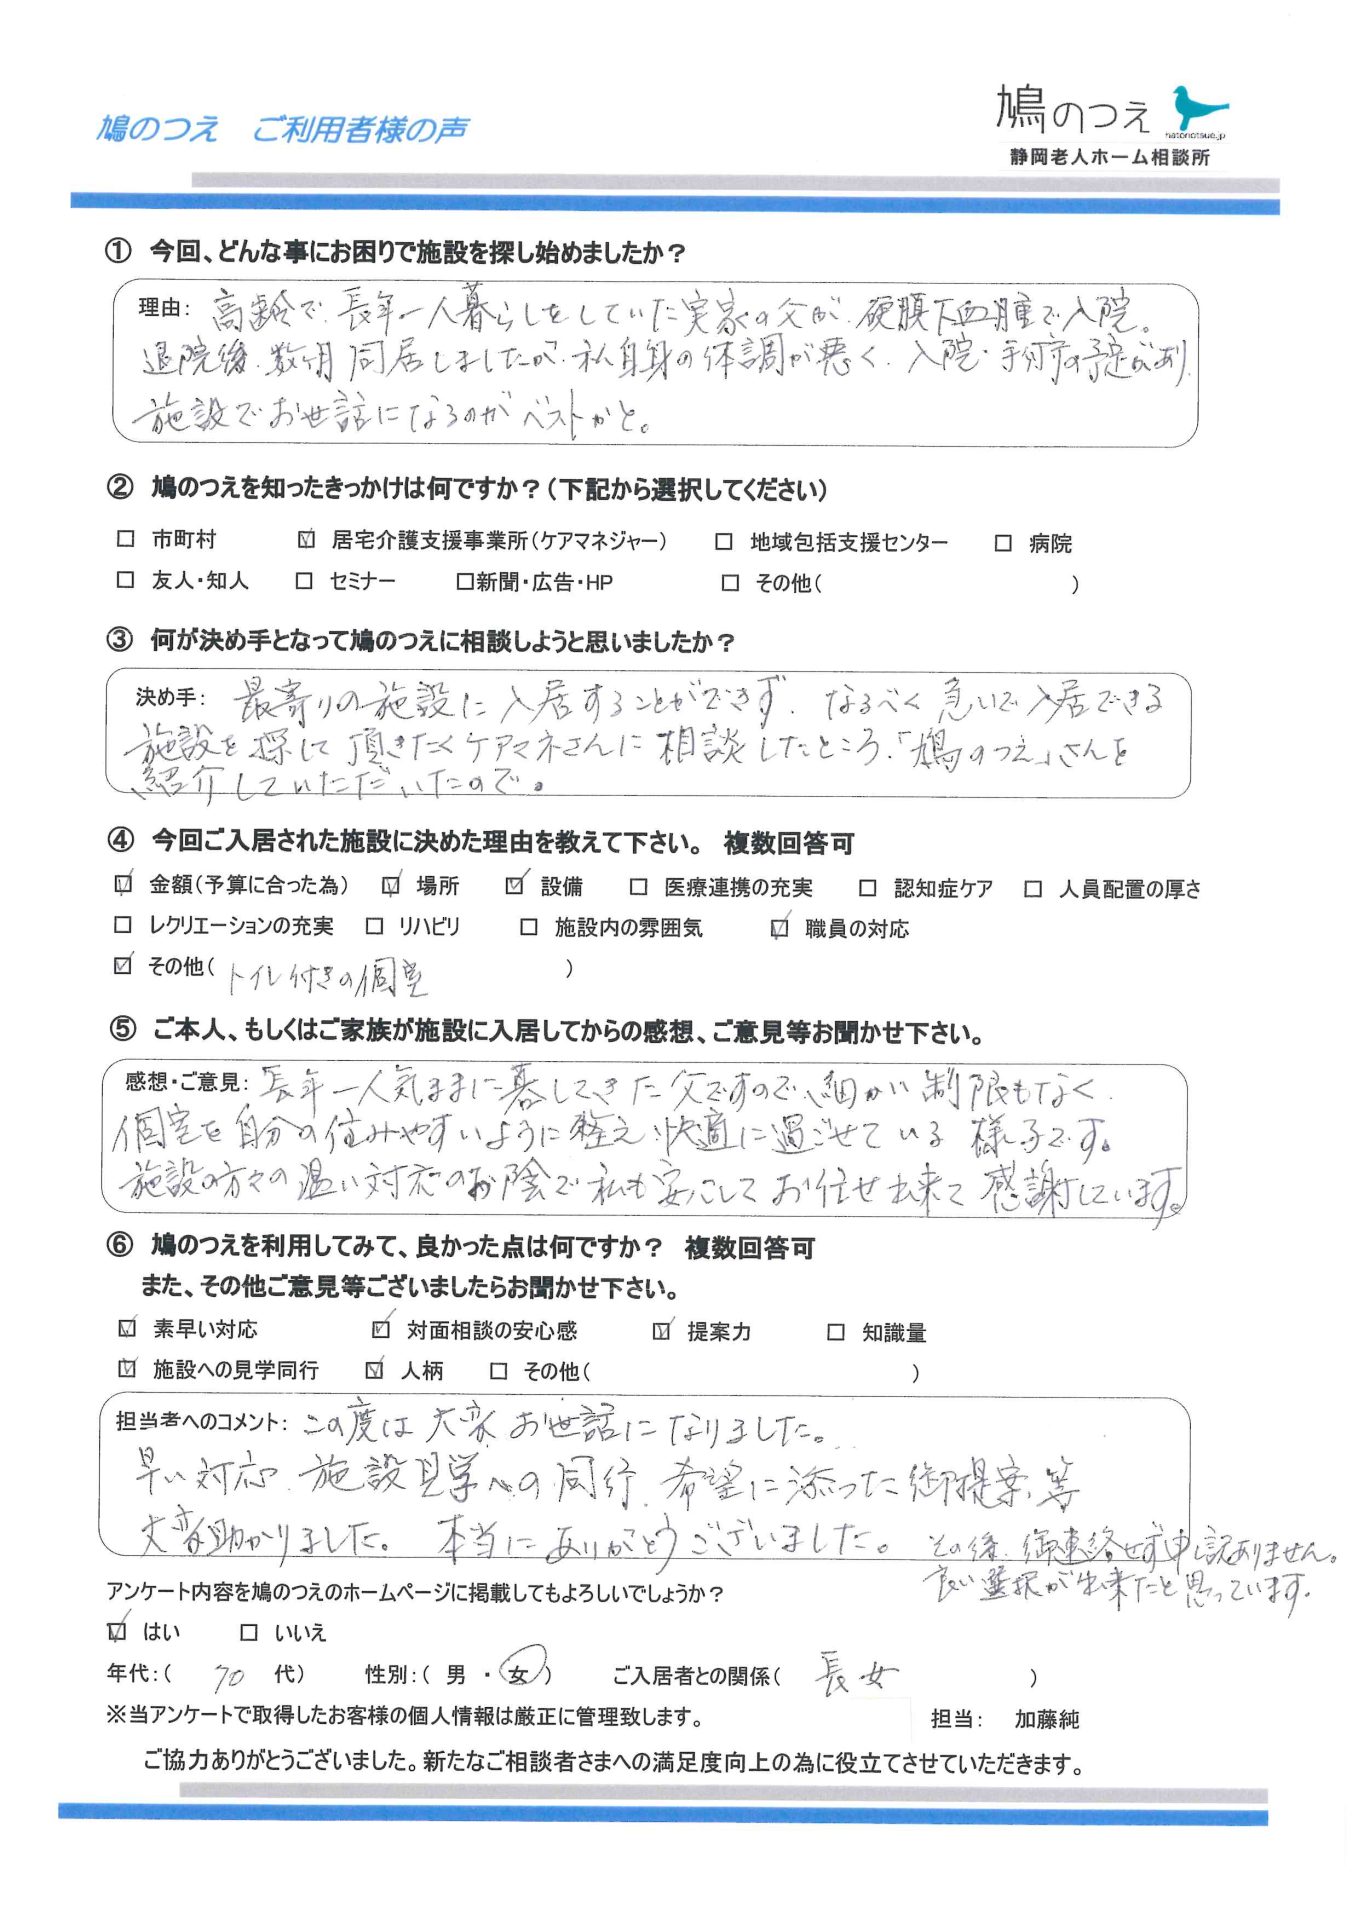 鳩のつえ　ご利用者様の声
鳩のつえ
hatonotsue.jp
静岡老人ホーム相談所
① 今回、どんな事にお困りで施設を探し始めましたか？
理由: 高齢で、長年一人暮らしをしていた実家の父が、硬膜下血腫で入院。
退院後、数ヶ月同居しましたが、私自身の体調が悪く、入院・手術の予定があり
施設でお世話になるのがベストかと。
② 鳩のつえを知ったきっかけは何ですか？（下記から選択してください）
☐ 市町村 ☑ 居宅介護支援事業所（ケアマネジャー） ☐ 地域包括支援センター ☐ 病院
☐ 友人・知人 ☐ セミナー ☐新聞・広告・HP ☐ その他（ ）
③ 何が決め手となって鳩のつえに相談しようと思いましたか？
決め手: 最寄りの施設に入居することができず、なるべく急いで入居できる
施設を探して頂きたくケアマネさんに相談したところ、「鳩のつえ」さんを
紹介していただいたので。
④ 今回ご入居された施設に決めた理由を教えて下さい。 複数回答可
☑ 金額（予算に合った為） ☑ 場所 ☑ 設備 ☐ 医療連携の充実 ☐ 認知症ケア ☐ 人員配置の厚さ
☐ レクリエーションの充実 ☐ リハビリ ☐ 施設内の雰囲気 ☑ 職員の対応
☑ その他（トイレ付きの個室 ）
⑤ ご本人、もしくはご家族が施設に入居してからの感想、ご意見等お聞かせ下さい。
感想・ご意見: 長年一人気ままに暮してきた父ですので、細かい制限もなく
個室を自分の住みやすいように整え、快適に過ごせている様子です。
施設の方々の温い対応のお陰で私も安心してお任せ出来て感謝しています。
⑥ 鳩のつえを利用してみて、良かった点は何ですか？ 複数回答可
また、その他ご意見等ございましたらお聞かせ下さい。
☑ 素早い対応 ☑ 対面相談の安心感 ☑ 提案力 ☐ 知識量
☑ 施設への見学同行 ☑ 人柄 ☐ その他（ ）
担当者へのコメント: この度は大変お世話になりました。
早い対応、施設見学への同行、希望に添った御提案、等
大変助かりました。 本当にありがとうございました。
その後、御連絡せず申し訳ありません。
良い選択が出来たと思っています。
アンケート内容を鳩のつえのホームページに掲載してもよろしいでしょうか？
☑ はい ☐ いいえ
年代:（ 70 代） 性別:（ 男 ・ 女 ） ご入居者との関係（ 長女 ）
※当アンケートで取得したお客様の個人情報は厳正に管理致します。 担当: 加藤純
ご協力ありがとうございました。新たなご相談者さまへの満足度向上の為に役立てさせていただきます。